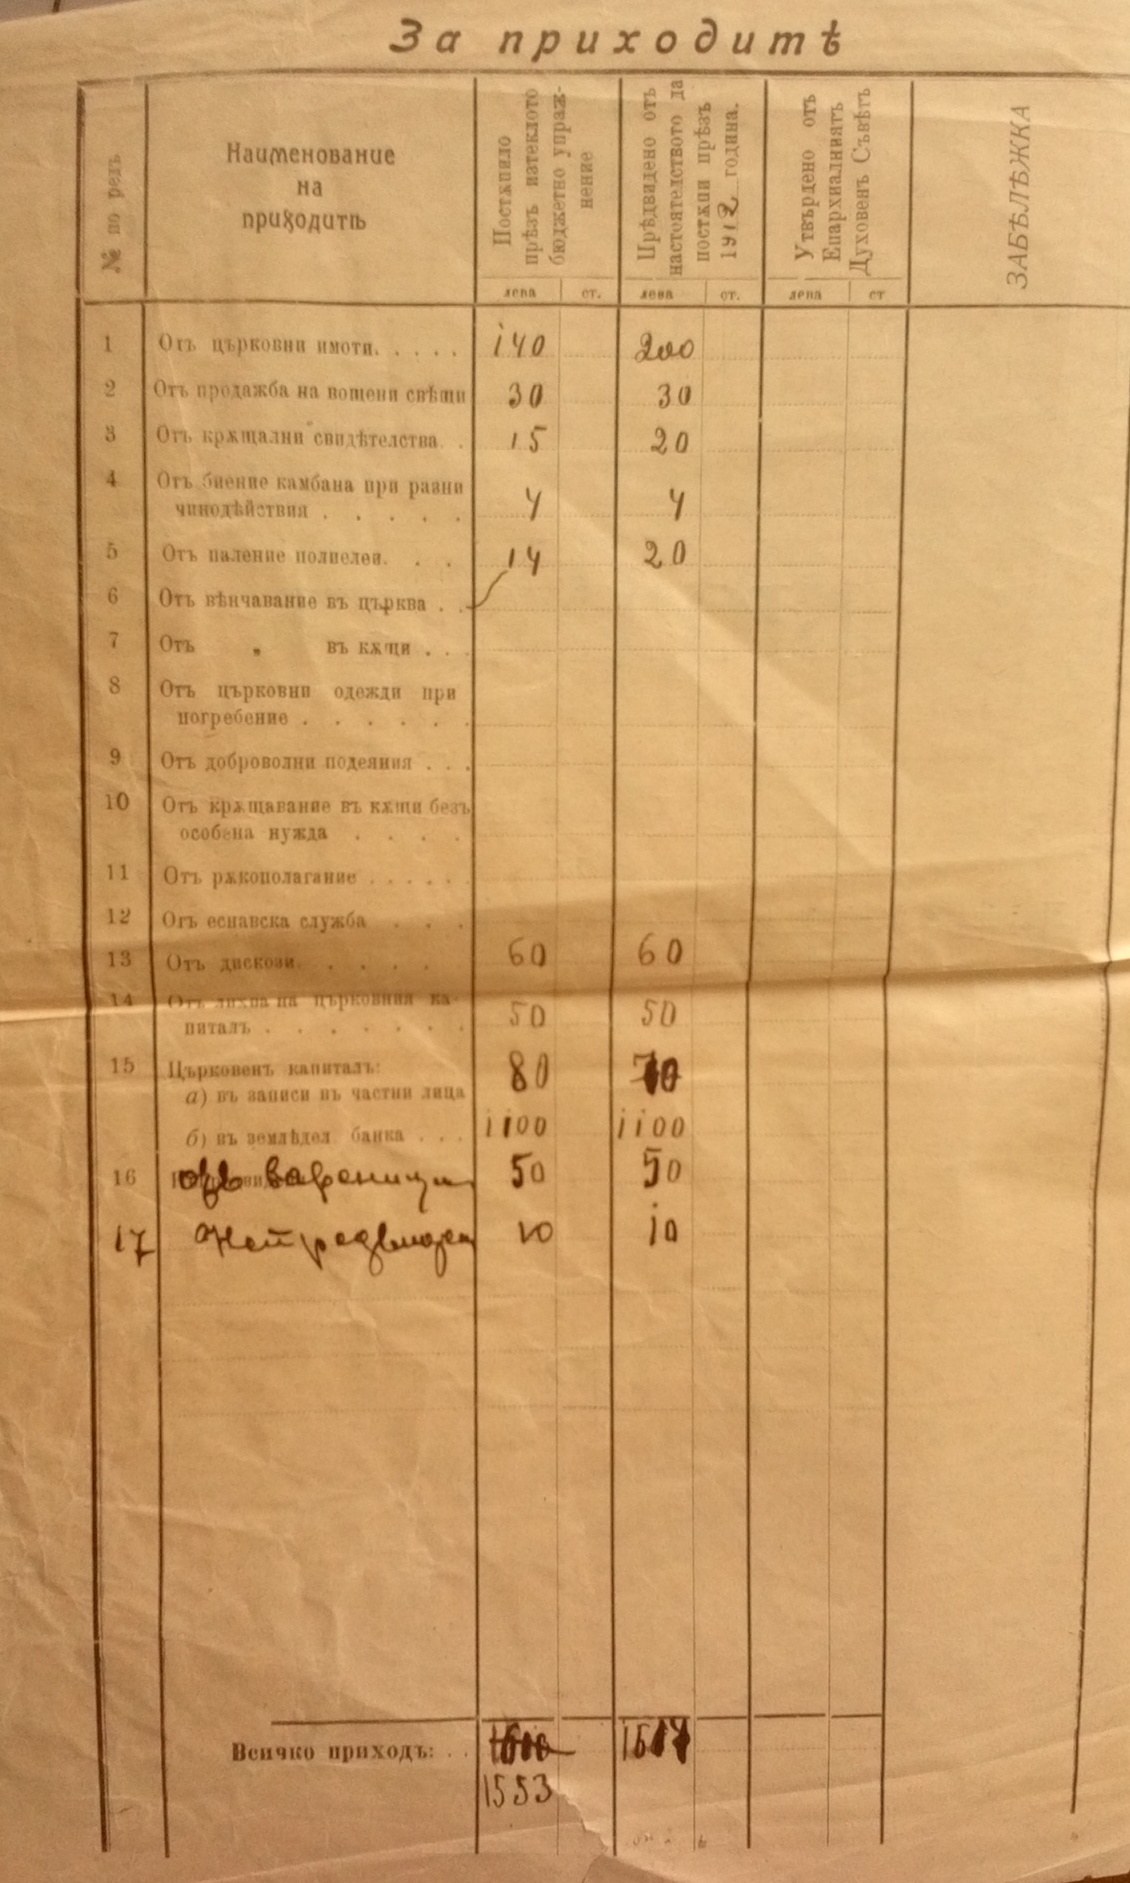 За приходитѣ
№ по редъ
Наименование
на
приходитѣ
Постѫпило
прѣзъ изтеклото
бюджетно упраж-
нение
Прѣдвидено отъ
настоятелството да
постѫпи прѣзъ
1912 година.
Утвърдено отъ
Епархиалниятъ
Духовенъ Съвѣтъ
ЗАБѢЛѢЖКА
лева ст. лева ст. лева ст
1 Отъ църковни имоти. . . . . 140 200
2 Отъ продажба на вощени свѣщи 30 30
3 Отъ крѫщални свидѣтелства . . 15 20
4 Отъ биение камбана при разни
чинодѣйствия . . . . . 4 4
5 Отъ паление полиелеи. . . 14 20
6 Отъ вѣнчавание въ църква . .
7 Отъ „ въ кѫщи . . .
8 Отъ църковни одежди при
погребение . . . . . .
9 Отъ доброволни подеяния . . .
10 Отъ крѫщавание въ кѫщи безъ
особена нужда . . . .
11 Отъ рѫкополагание . . . . . .
12 Отъ еснавска служба . . .
13 Отъ дискози. . . . . 60 60
14 Отъ лихва на църковния ка-
питалъ . . . . . . . 50 50
15 Църковенъ капиталъ:
а) въ записи въ частни лица 80 70
б) въ земледѣл. банка . . . 1100 1100
16 отъ вареници 50 50
17 Непредвидени 10 10
Всичко приходъ: . . 1617
1553